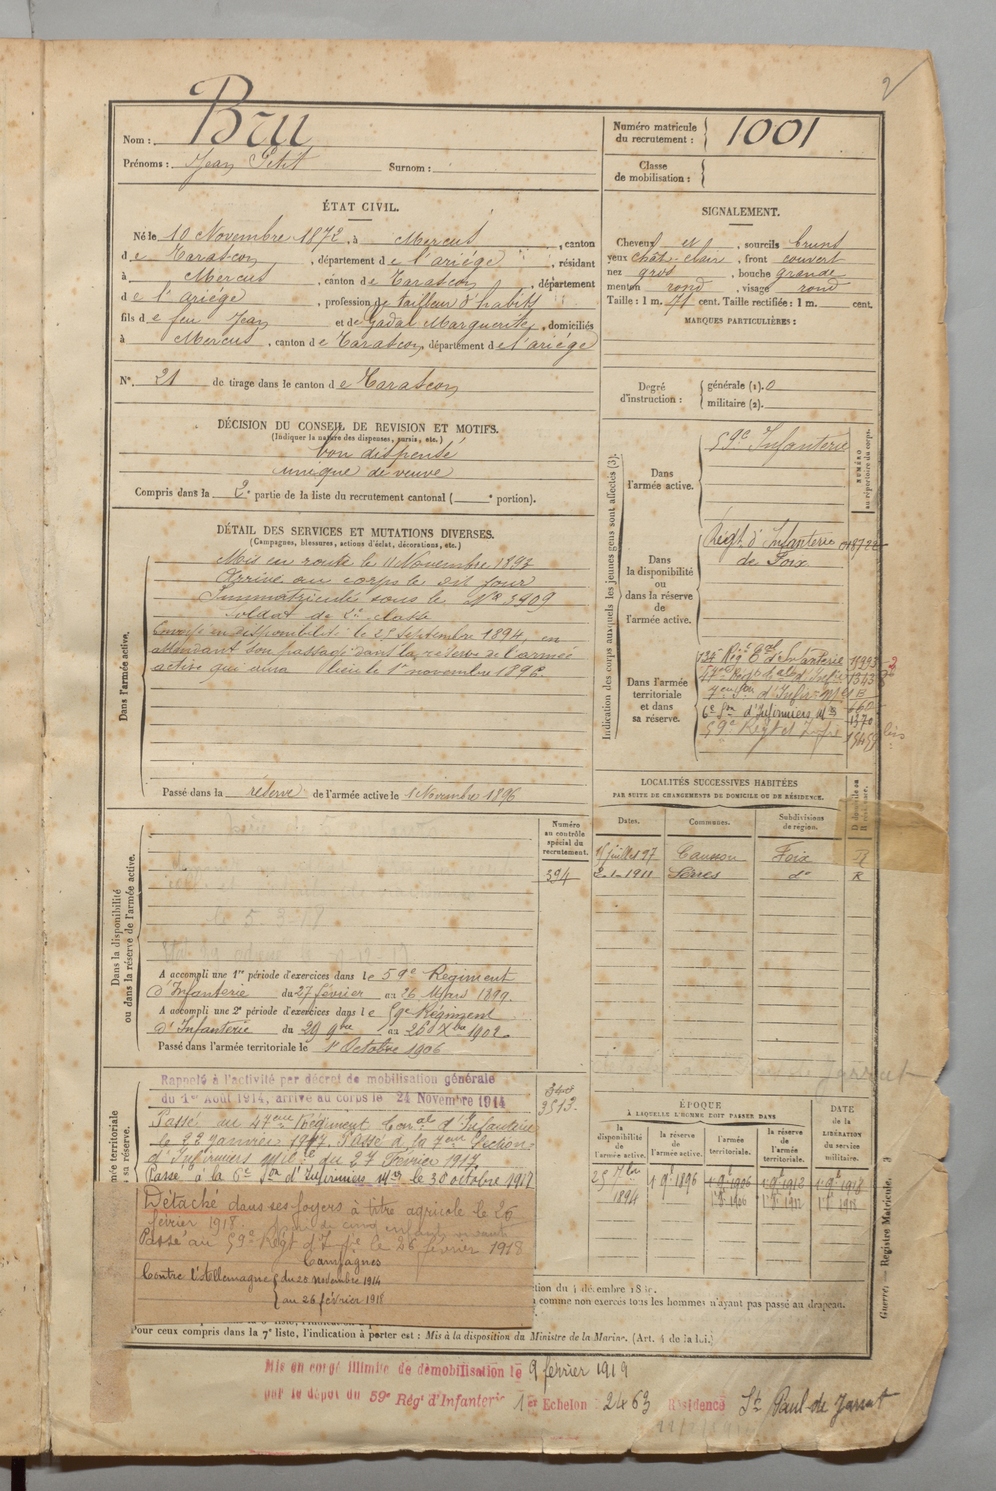 2
Nom : Bru
Prénoms : Jean Petit Surnom :
Numéro matricule du recrutement : 1001
Classe de mobilisation :
ÉTAT CIVIL.
Né le 10 Novembre 1872, à Mercus, canton
de Tarascon, département de l'ariège, résidant
à Mercus, canton de Tarascon, département
de l'ariège, profession de tailleur d'habits
fils de feu Jean et de Gadal Marguerite, domiciliés
à Mercus, canton de Tarascon, département de l'ariège
N°. 21 de tirage dans le canton de Tarascon
SIGNALEMENT.
Cheveux et , sourcils bruns
yeux chât. clair, front couvert
nez gros, bouche grande
menton rond, visage rond
Taille : 1 m. 71 cent. Taille rectifiée : 1 m. cent.
MARQUES PARTICULIÈRES :
Degré d'instruction : générale (1). 0
militaire (2).
DÉCISION DU CONSEIL DE REVISION ET MOTIFS.
(Indiquer la nature des dispenses, sursis, etc.)
bon dispensé
unique de veuve
Compris dans la 2e partie de la liste du recrutement cantonal ( e portion).
DÉTAIL DES SERVICES ET MUTATIONS DIVERSES.
(Campagnes, blessures, actions d'éclat, décorations, etc.)
Dans l'armée active.
Mis en route le 11 Novembre 1893
Arrivé au corps le dit jour
Immatriculé sous le No 3909
Soldat de 2e classe
Envoyé en disponibilité le 25 septembre 1894, en
attendant son passage dans la réserve de l'armée
active qui aura lieu le 1er novembre 1896.
Passé dans la réserve de l'armée active le 1 Novembre 1896
Indication des corps auxquels les jeunes gens sont affectés (3).
NUMÉRO au répertoire du corps.
Dans l'armée active.
59e Infanterie
Dans la disponibilité ou dans la réserve de l'armée active.
Régt. d'Infanterie
de Foix
Dans l'armée territoriale et dans sa réserve.
134 Rég. Eal d'Infanterie
6e Son d'Infirmiers Mres
59e Régt d'Infie
LOCALITÉS SUCCESSIVES HABITÉES
PAR SUITE DE CHANGEMENTS DE DOMICILE OU DE RÉSIDENCE.
Dates. Communes. Subdivisions de région.
15 juillet 97 Caussou Foix R
2-1-1911 Serres do R
Dans la disponibilité ou dans la réserve de l'armée active.
Numéro au contrôle spécial du recrutement.
394
A accompli une 1re période d'exercices dans le 59e Régiment
d'Infanterie du 27 février au 26 Mars 1899
A accompli une 2e période d'exercices dans le 59e Régiment
d'Infanterie du 29 9bre au 26 Xbre 1902
Passé dans l'armée territoriale le 1er Octobre 1906
Rappelé à l'activité par décret de mobilisation générale
du 1er Août 1914, arrivé au corps le 24 Novembre 1914
3513
Passé au 47eme Régiment Torial d'Infanterie
le 22 janvier 1917. Passé à la 7eme Section
d'Infirmiers milire du 27 Février 1917.
Passé à la 6e Son d'Infirmiers Mres le 30 octobre 1917
Détaché dans ses foyers à titre agricole le 26
février 1918. père de cinq enfants vivants
Passé au 59e Régt d'Infie le 26 février 1918
Campagnes
Contre l'Allemagne { du 20 novembre 1914
au 26 février 1918
ÉPOQUE
À LAQUELLE L'HOMME DOIT PASSER DANS
la disponibilité de l'armée active. la réserve de l'armée active. l'armée territoriale. la réserve de l'armée territoriale.
DATE de la LIBÉRATION du service militaire.
25 7bre 1894 1 9 1896
Guerre. — Registre Matricule.
comme non exercés tous les hommes n'ayant pas passé au drapeau.
Pour ceux compris dans la 7e liste, l'indication à porter est : Mis à la disposition du Ministre de la Marine. (Art. 4 de la loi.)
Mis en congé illimité de démobilisation le 9 février 1919
par le dépôt du 59e Régt d'Infanterie 1er Echelon 2463 Résidence St Paul de Jarrat